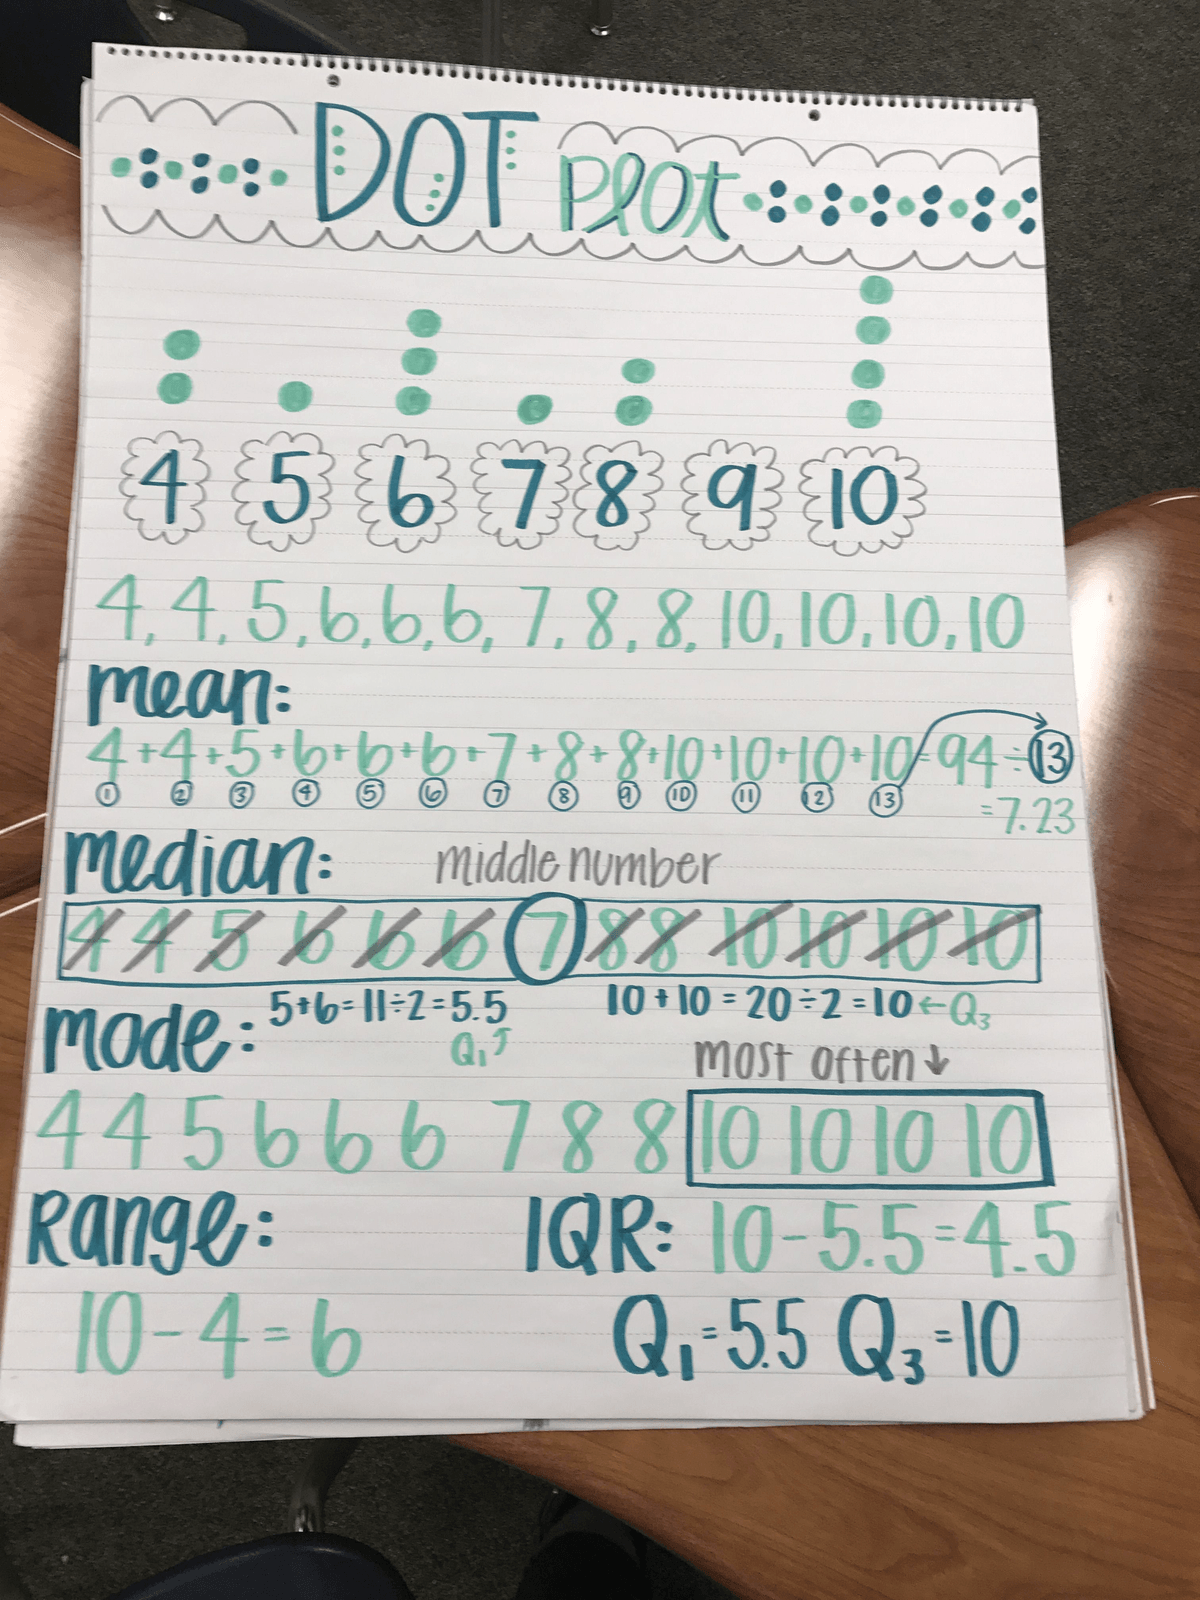 DOT Plot
4 5 6 7 8 9 10
4, 4, 5, 6, 6, 6, 7, 8, 8, 10, 10, 10, 10
mean:
4+4+5+6+6+6+7+8+8+10+10+10+10=94÷13
1 2 3 4 5 6 7 8 9 10 11 12 13
=7.23
median: middle number
4 4 5 6 6 6 7 8 8 10 10 10 10
5+6=11÷2=5.5 10+10=20÷2=10←Q3
Q1↑
mode:
most often↓
4 4 5 6 6 6 7 8 8 10 10 10 10
Range: IQR: 10-5.5=4.5
10-4=6 Q1=5.5 Q3=10